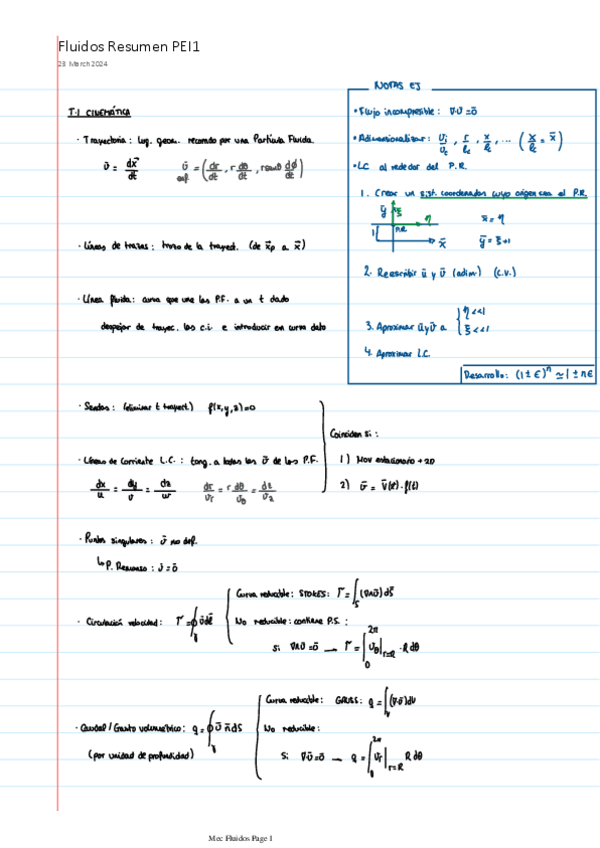 Fluidos Resumen PEI1
28 March 2024
T.1 CINEMÁTICA
· Trayectoria: lug. geom. recorrido por una Partícula Fluida.
v̄ = dx⃗/dt   v̄ esf = (dr/dt, r dθ/dt, r senθ dϕ/dt)
· Líneas de trazas: trozo de la trayect. (de x̄p a x̄)
· Línea fluida: curva que une las P.F. a un t dado
despejar de trayec. las c.i e introducir en curva dato
· Sendas: (eliminar t trayect.) f(x,y,z)=0
· Líneas de Corriente L.C.: tang. a todas las v̄ de las P.F.
dx/u = dy/v = dz/w   dr/vr = r dθ/vθ = dz/vz
Coinciden si:
1) Mov estacionario + 2D
2) v̄ = V̄(x̄)·f(t)
· Puntos singulares: v̄ no def.
↳ P. Remanso: v̄=0̄
· Circulación velocidad: Γ=∮ v̄ dl̄
Curva reducible: STOKES: Γ=∫s (∇∧v̄)dS̄
No reducible: contiene P.S.:
Si ∇∧v̄=0̄ → Γ=∫0 2π vθ|r=R · R dθ
· Caudal/Gasto volumétrico: q=∮ v̄ n̄ dS
(por unidad de profundidad)
Curva reducible: GAUSS: q=∫v (∇·v̄)dV
No reducible:
Si ∇v̄=0̄ → q=∫0 2π vr|r=R R dθ
NOTAS EJ
· Flujo incompresible: ∇·v̄=0̄
· Adimensionalizar: vi/vc, r/lc, x/lc, ... (x/lc = x̄)
· LC al rededor del P.R.
1. Crear un sist. coordenadas cuyo origen sea el P.R.
ȳ ξ η P.R. 1 x̄
x̄ = η
ȳ = ξ+1
2. Reescribir ū y v̄ (adim.) (c.v.)
3. Aproximar ū y v̄ a { η<<1
ξ<<1
4. Aproximar L.C.
Desarrollo: (1±ε)ⁿ ≃ 1±nε
Mec Fluidos Page 1